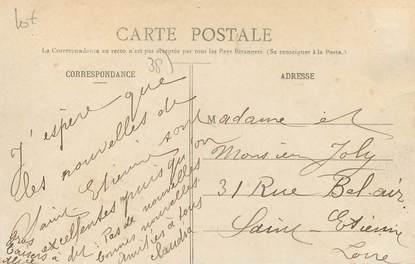 lot
CARTE POSTALE
La Correspondance au recto n'est pas acceptée par tous les Pays Étrangers. (Se renseigner à la Poste.)
CORRESPONDANCE
ADRESSE
385
J'espère que
les nouvelles de
Saint Etienne sont
excellentes puisqu'on
dit: Pas de nouvelles
bonnes nouvelles
Amitiés à tous
Claudia
Gros
baisers
Madame et
Monsieur Joly
31 Rue Bel-air
Saint-Etienne
Loire